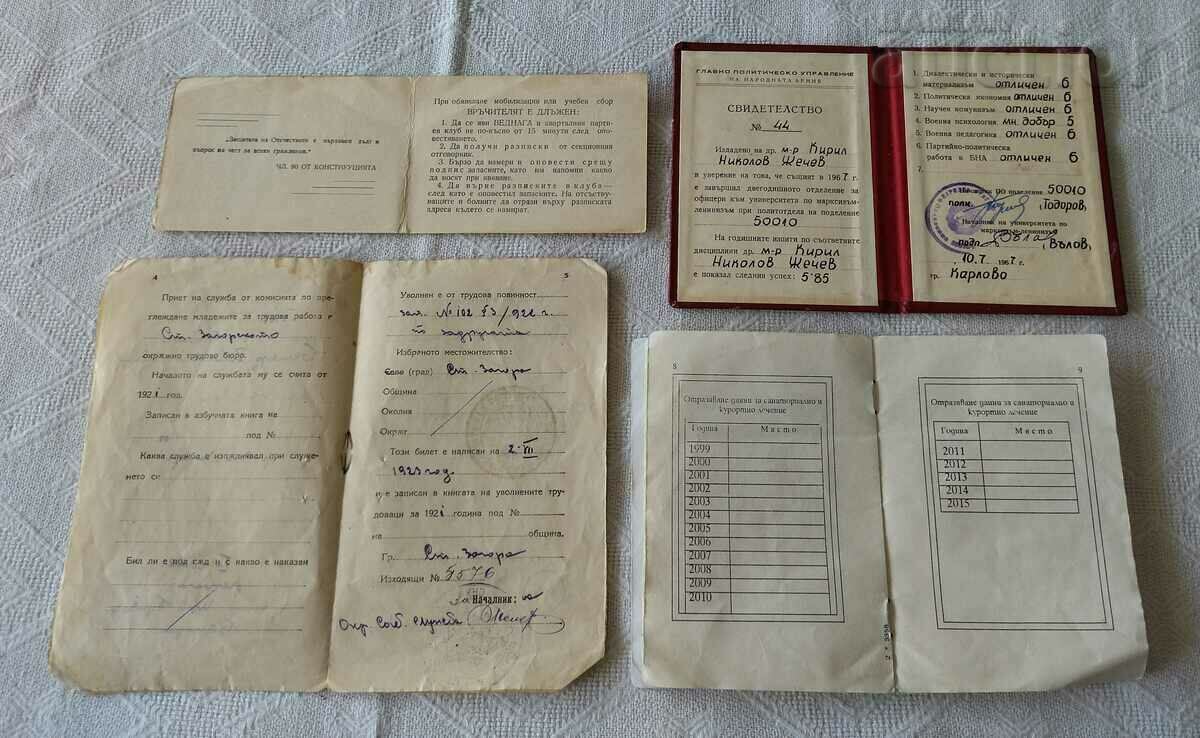 „Защитата на Отечеството е върховен дълг и
въпрос на чест за всеки гражданин."
ЧЛ. 90 ОТ КОНСТИТУЦИЯТА
При обявяване мобилизация или учебен сбор
ВРЪЧИТЕЛЯТ Е ДЛЪЖЕН:
1. Да се яви ВЕДНАГА в кварталния парти-
ен клуб не по-късно от 15 минути след опо-
вестяването.
2. Да получи разписки от секционния
отговорник.
3. Бързо да намери и оповести срещу
подпис запасните, като им напомни какво
да носят при явяване.
4. Да върне разписките в клуба —
след като е оповестил запасните. На отсъству-
ващите и болните да отрази върху разписката
адреса където се намират.
ГЛАВНО ПОЛИТИЧЕСКО УПРАВЛЕНИЕ
НА НАРОДНАТА АРМИЯ
СВИДЕТЕЛСТВО
№ 44
Издадено на др. м-р Кирил
Николов Жечев
в уверение на това, че същият в 1967 г.
е завършил двегодишното отделение за
офицери към университета по марксизъм-
ленинизъм при политотдела на поделение
50010
На годишните изпити по съответните
дисциплини др. м-р Кирил
Николов Жечев
е показал следния успех: 5·85
1. Диалектически и исторически
материализъм отличен 6
2. Политическа икономия отличен 6
3. Научен комунизъм отличен 6
4. Военна психология мн. добър 5
5. Военна педагогика отличен 6
6. Партийно-политическа
работа в БНА отличен 6
7.
Началник ПО поделение 50010
полк. (Тодоров)
Началник на университета по
марксизъм-ленинизъм
подп. (Вълов)
10.7.1967 г.
гр. Карлово
4
Приет на служба от комисията по пре-
глеждане младежите за трудова работа в
Ст. Загорското
окръжно трудово бюро.
Началото на службата му се счита от
1921 год.
Записан в азбучната книга на
под №
Каква служба е изпълнявал при служе-
нето си
Бил ли е под съд и с какво е наказан
5
Уволнен е от трудова повинност
Избраното местожителство:
село (град) Ст. Загора
Община
Околия
Окръг
Този билет е написан на 2·VII
1923 год.
и е записан в книгата на уволнените тру-
доваци за 1921 година под №
на община.
Гр. Ст. Загора
Изходящи № 9576
за Началник:
Окр. служба
8
Отразяване данни за санаториално и
курортно лечение
Година Място
1999
2000
2001
2002
2003
2004
2005
2006
2007
2008
2009
2010
9
Отразяване данни за санаториално и
курортно лечение
Година Място
2011
2012
2013
2014
2015
2 * 3358